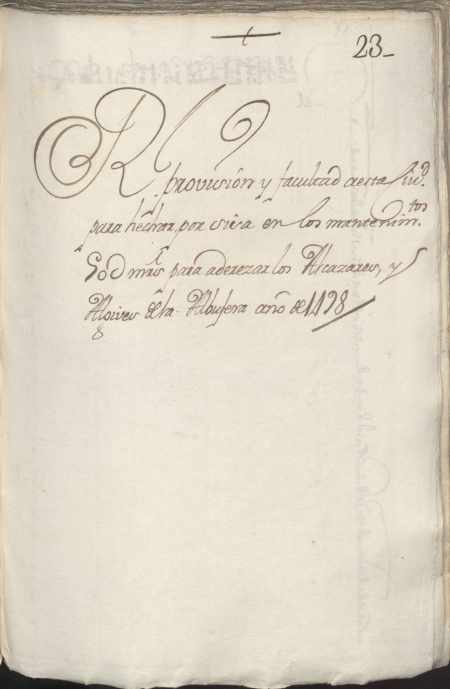 23_
Rl
provision y facultad a esta Ciud.
para hechar por sisa en los mantenim.tos
mrs para aderezar los Alcazares, y
Algives de la Albufera año de 1498